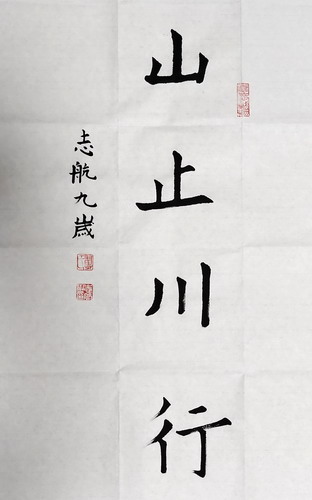 山止川行
志航九歲